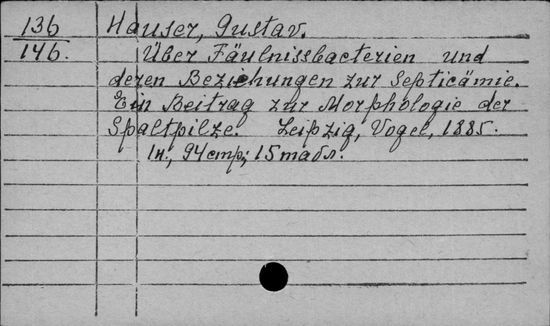 136
146.
Hauser, Gustav.
Über Fäulnissbacterien und
deren Beziehungen zur Septicämie.
Ein Beitrag zur Morphologie der
Spaltpilze. Leipzig, Vogel, 1885.
IH., 94 стр; 15 табл.